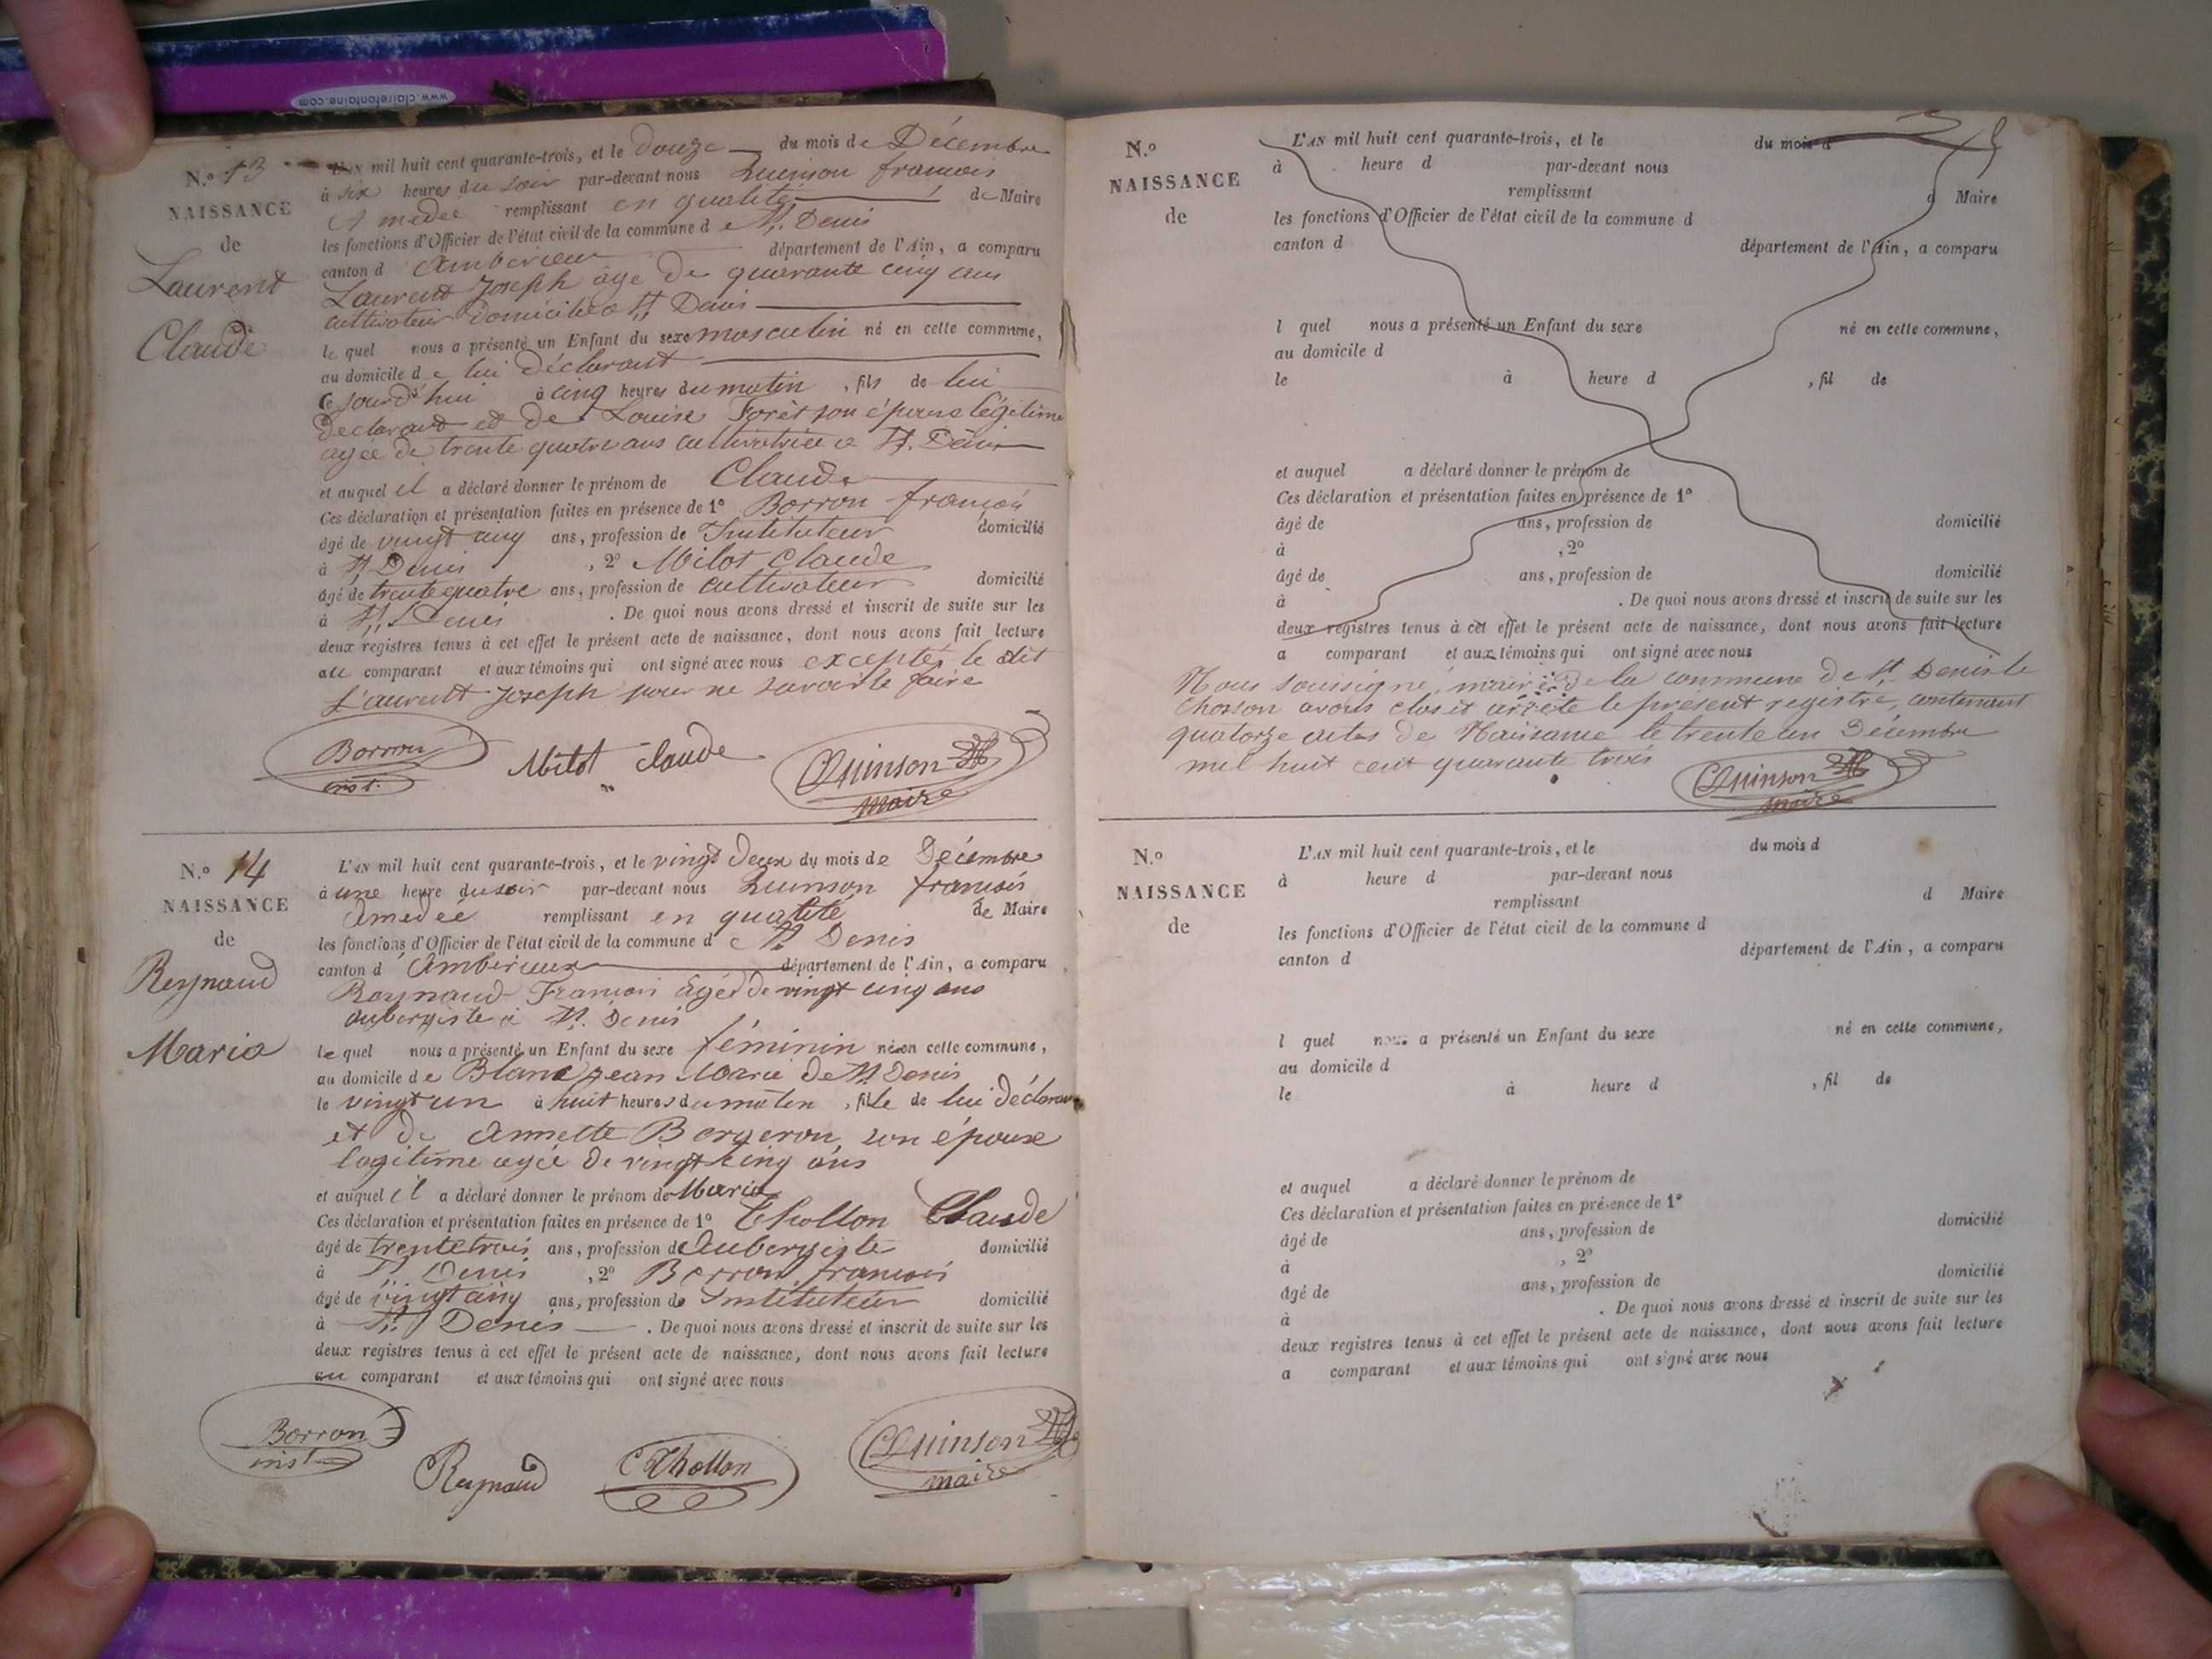 www.clairefontaine.com
N.º 13
NAISSANCE
de
Laurent
Claude
L'AN mil huit cent quarante-trois, et le douze du mois de Décembre
à six heures du soir par-devant nous Quinson francois
Amedée remplissant en qualité de Maire
les fonctions d'Officier de l'état civil de la commune de St. Denis
canton d'Amberieux département de l'Ain, a comparu
Laurent Joseph âgé de quarante cinq ans
cultivateur domicilié à St Denis
le quel nous a présenté un Enfant du sexe masculin né en cette commune,
au domicile de lui déclarant
Ce Jourd'hui à cinq heures du matin, fils de lui
declarant et de Louise Forêt son épouse légitime
agée de trente quatre ans cultivatrice à St. Denis
et auquel il a déclaré donner le prénom de Claude
Ces déclaration et présentation faites en présence de 1º Borron françois
âgé de vingt cinq ans, profession de Instituteur domicilié
à St Denis, 2º Milot Claude
âgé de trente quatre ans, profession de cultivateur domicilié
à St. Denis. De quoi nous avons dressé et inscrit de suite sur les
deux registres tenus à cet effet le présent acte de naissance, dont nous avons fait lecture
au comparant et aux témoins qui ont signé avec nous excepté, le dit
Laurent Joseph pour ne savoir le faire
Borron inst.
Milot Claude
Quinson maire
N.º 14
NAISSANCE
de
Reynaud
Maria
L'AN mil huit cent quarante-trois, et le vingt deux du mois de Décembre
à une heure du soir par-devant nous Quinson francois
Amedée remplissant en qualité de Maire
les fonctions d'Officier de l'état civil de la commune de St. Denis
canton d'Amberieux département de l'Ain, a comparu
Raynaud Francois âgé de vingt cinq ans
aubergiste à St. Denis
le quel nous a présenté un Enfant du sexe féminin né en cette commune,
au domicile de Blanc jean Marie de St Denis
le vingt un à huit heures du matin, fille de lui déclarant
et de Annette Bergeron, son épouse
légitime agée de vingt cinq ans
et auquel il a déclaré donner le prénom de Maria
Ces déclaration et présentation faites en présence de 1º Thollon Claude
âgé de trente trois ans, profession d'Aubergiste domicilié
à St. Denis, 2º Borron francois
âgé de vingt cinq ans, profession de Instituteur domicilié
à St. Denis. De quoi nous avons dressé et inscrit de suite sur les
deux registres tenus à cet effet le présent acte de naissance, dont nous avons fait lecture
au comparant et aux témoins qui ont signé avec nous
Borron inst
Reynaud
C Thollon
Quinson maire
N.º
NAISSANCE
de
L'AN mil huit cent quarante-trois, et le du mois d
à heure d par-devant nous
remplissant d Maire
les fonctions d'Officier de l'état civil de la commune d
canton d département de l'Ain, a comparu
l quel nous a présenté un Enfant du sexe né en cette commune,
au domicile d
le à heure d, fil de
et auquel a déclaré donner le prénom de
Ces déclaration et présentation faites en présence de 1º
âgé de ans, profession de domicilié
à, 2º
âgé de ans, profession de domicilié
à. De quoi nous avons dressé et inscrit de suite sur les
deux registres tenus à cet effet le présent acte de naissance, dont nous avons fait lecture
a comparant et aux témoins qui ont signé avec nous
Nous soussigné, maire de la commune de St. Denis le
Chosson avons clos et arrêté le présent registre, contenant
quatorze actes de Naissance le trente un Décembre
mil huit cent quarante trois
Quinson maire
N.º
NAISSANCE
de
L'AN mil huit cent quarante-trois, et le du mois d
à heure d par-devant nous
remplissant d Maire
les fonctions d'Officier de l'état civil de la commune d
canton d département de l'Ain, a comparu
l quel nous a présenté un Enfant du sexe né en cette commune,
au domicile d
le à heure d, fil de
et auquel a déclaré donner le prénom de
Ces déclaration et présentation faites en présence de 1º
âgé de ans, profession de domicilié
à, 2º
âgé de ans, profession de domicilié
à. De quoi nous avons dressé et inscrit de suite sur les
deux registres tenus à cet effet le présent acte de naissance, dont nous avons fait lecture
a comparant et aux témoins qui ont signé avec nous